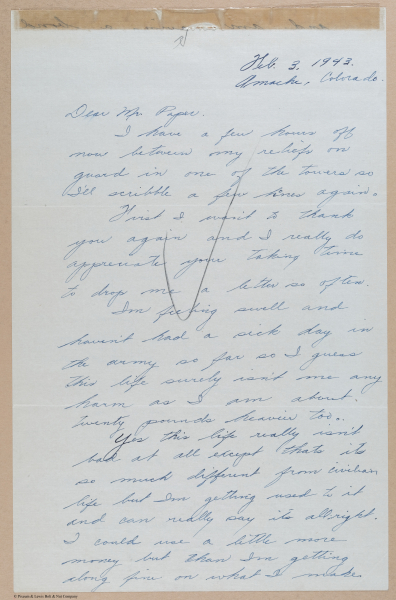 Feb. 3. 1943.
Amache, Colorado.
Dear Mr. Paper.
I have a few hours off
now between my reliefs on
guard in one of the towers so
I'll scribble a few lines again.
First I want to thank
you again and I really do
appreciate your taking time
to drop me a letter so often.
I'm feeling swell and
haven't had a sick day in
the army so far so I guess
this life surely isn't me any
harm as I am about
twenty pounds heavier too.
Yes this life really isn't
bad at all except thats its
so much different from civilian
life but I'm getting used to it
and can really say its allright.
I could use a little more
money but than I'm getting
along fine on what I make.